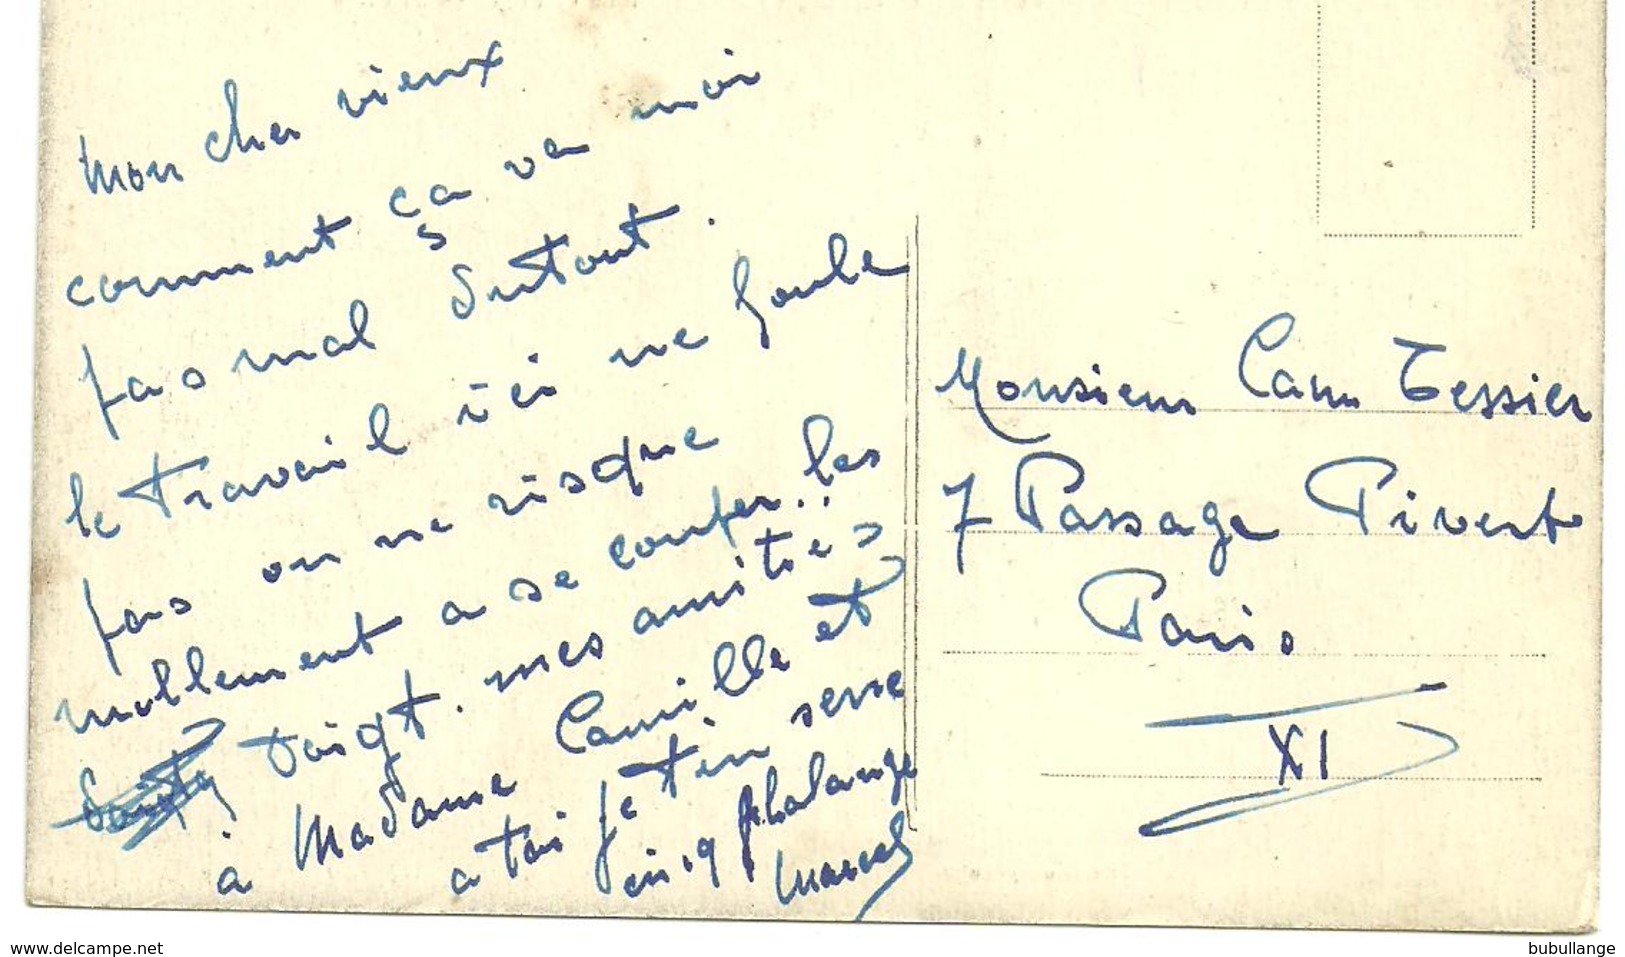 Mon cher vieux
comment ça va moi
pas mal surtout.
le travail ici ne foule
pas on ne risque
mollement a se couper.. les
doigt. mes amitiés
à Madame Camille et
a toi je t'en serre
cinq phalange
Marcel
Monsieur Cam Tessier
7 Passage Pivert
Paris
XI
www.delcampe.net
bubullange